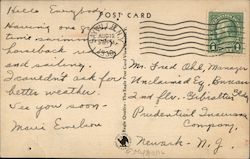 POST CARD
Hello Everybody:
Having one grand
time swimming,
horseback riding
and sailing.
I couldn't ask for
better weather.
See you soon -
Marie
Mr. Fred Ohl, Manager
Unclaimed Eq. Bureau
2nd flr. Gibraltar Bldg
Prudential Insurance
Company,
Newark - N.J.